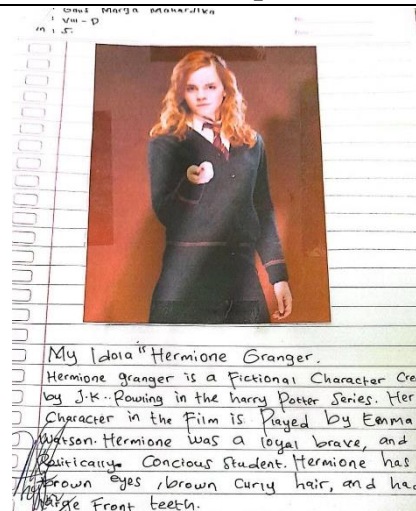 VIII - D
5.
My Idola "Hermione Granger.
Hermione granger is a Fictional Character Cre
by J.K. Rowing in the harry Potter Series. Her
Character in the Film is Played by Emma
Watson. Hermione was a loyal brave, and
Politically Concious Student. Hermione has
brown eyes, brown Curly hair, and had
large Front teeth.